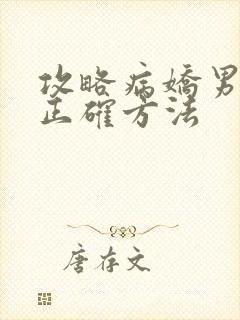 攻略病嬌男
正確方法
唐存文